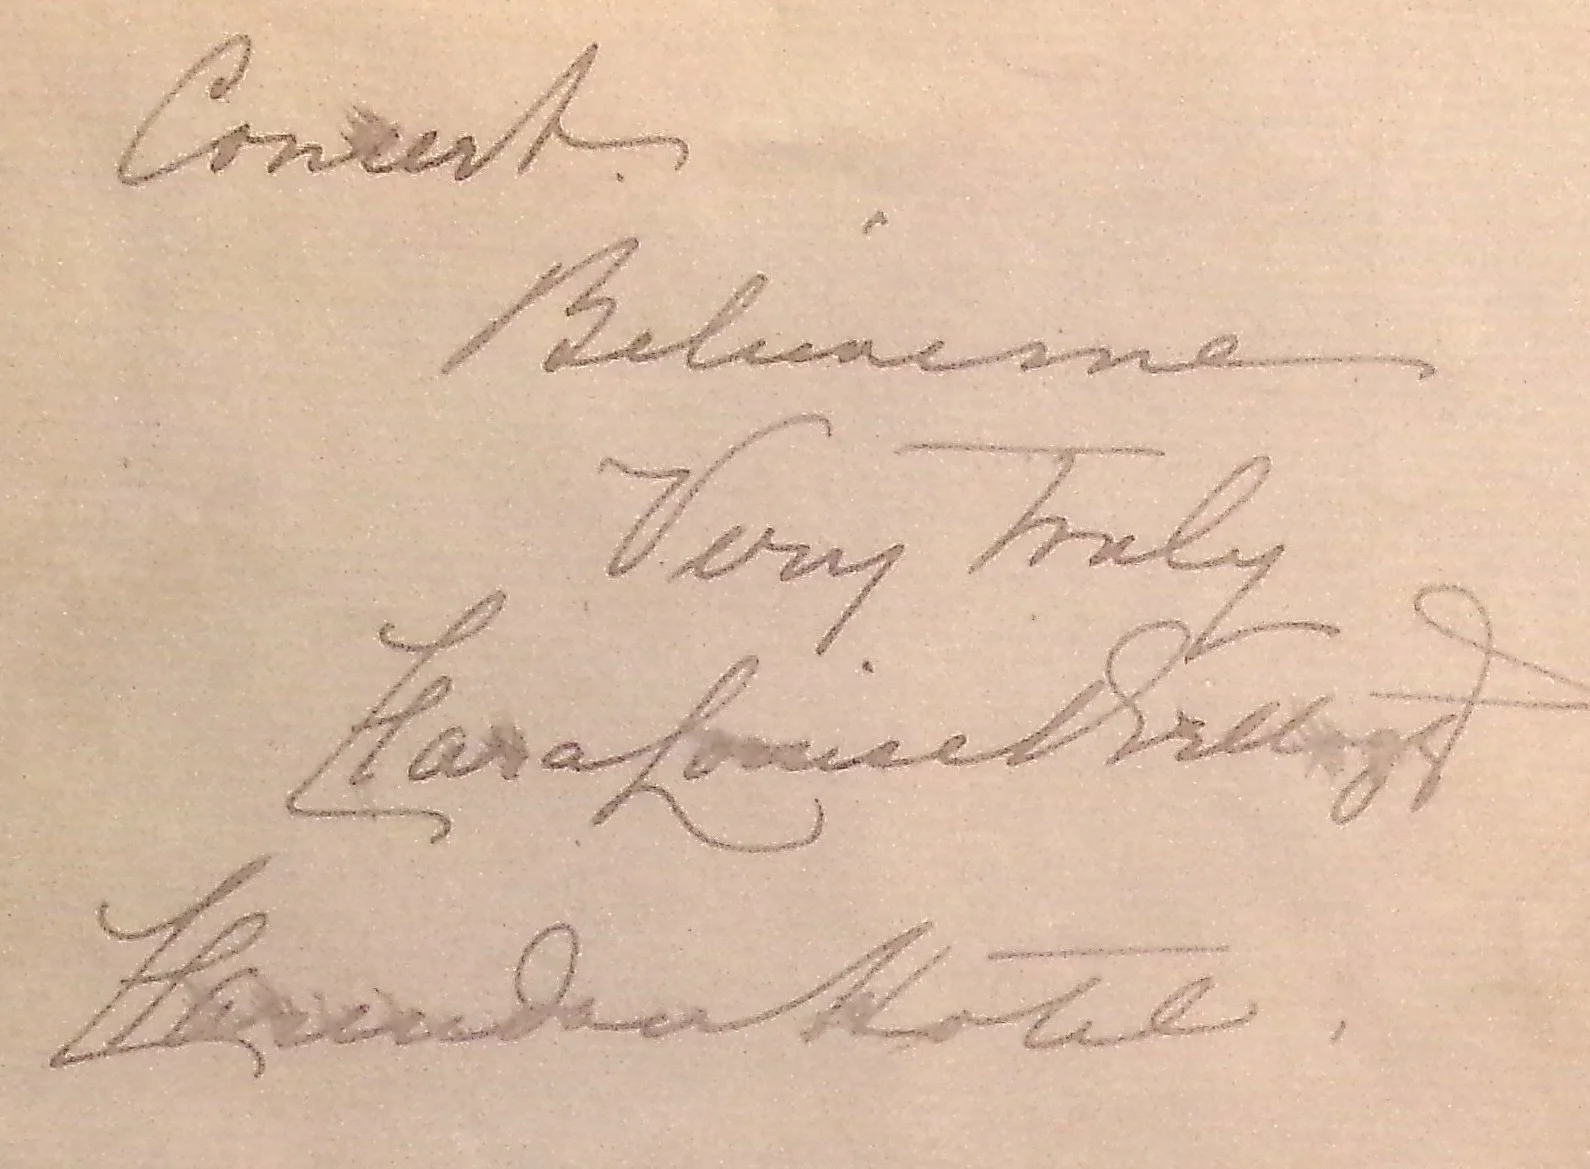 Concert.
Believe me
Very Truly
Clara Louise Kellogg
Clarendon Hotel.